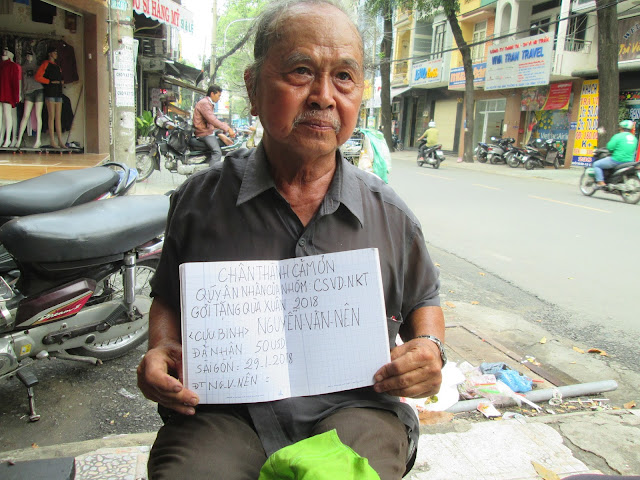 SI HÀNG MỸ
VINA TRAN TRAVEL
CHÂN THÀNH CẢM ƠN
QUÝ ÂN NHÂN CỦA NHÓM CSVD-NKT
GỞI TẶNG QUÀ XUÂN 2018
<CỰU BINH> NGUYỄN-VĂN-NÊN
ĐÃ NHẬN 50USD
SÀIGÒN: 29-1-2018
ĐT: NG.V.NÊN =